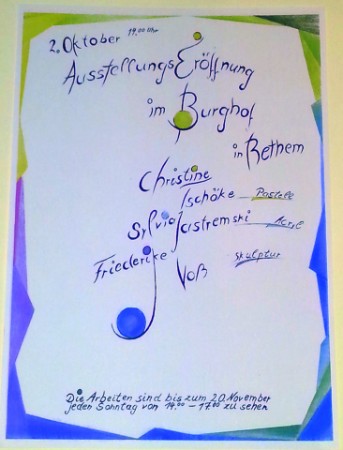 2. Oktober 19.00 Uhr
Ausstellungs Eröffnung
im Burghof
in Rethem
Christine
Ischöke Pastelle
Sylvia Jastremski Acryl
Friederike Voß Skulptur
Die Arbeiten sind bis zum 20. November
jeden Sonntag von 14.00 - 17.00 zu sehen